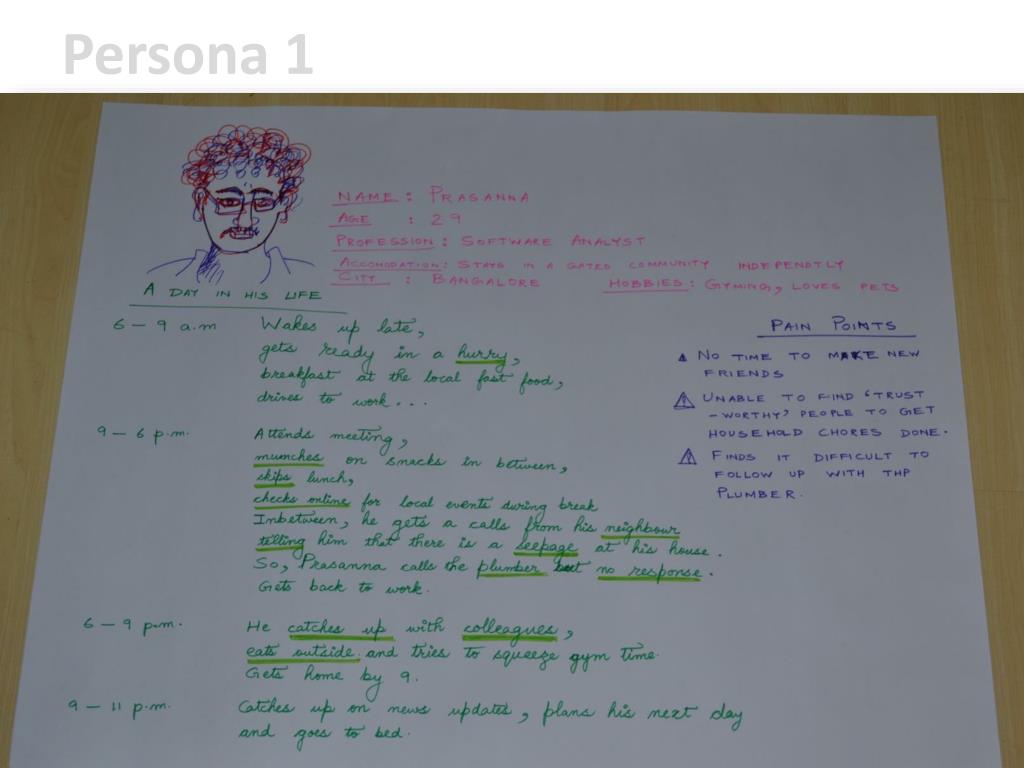 Persona 1
NAME : PRASANNA
AGE : 29
PROFESSION : SOFTWARE ANALYST
ACCOMODATION : STAYS IN A GATED COMMUNITY INDEPENDTLY
CITY : BANGALORE HOBBIES : GYMING, LOVES PETS
A DAY IN HIS LIFE
6 – 9 a.m Wakes up late,
gets ready in a hurry,
breakfast at the local fast food,
drives to work...
9 – 6 p.m. Attends meeting,
munches on snacks in between,
skips lunch,
checks online for local events during break
Inbetween, he gets a calls from his neighbour
telling him that there is a seepage at his house.
So, Prasanna calls the plumber but no response.
Gets back to work.
6 – 9 p.m. He catches up with colleagues,
eats outside and tries to squeeze gym time.
Gets home by 9.
9 – 11 p.m. Catches up on news updates, plans his next day
and goes to bed.
PAIN POINTS
NO TIME TO MAKE NEW
FRIENDS
UNABLE TO FIND 'TRUST
–WORTHY' PEOPLE TO GET
HOUSEHOLD CHORES DONE.
FINDS IT DIFFICULT TO
FOLLOW UP WITH THP
PLUMBER.